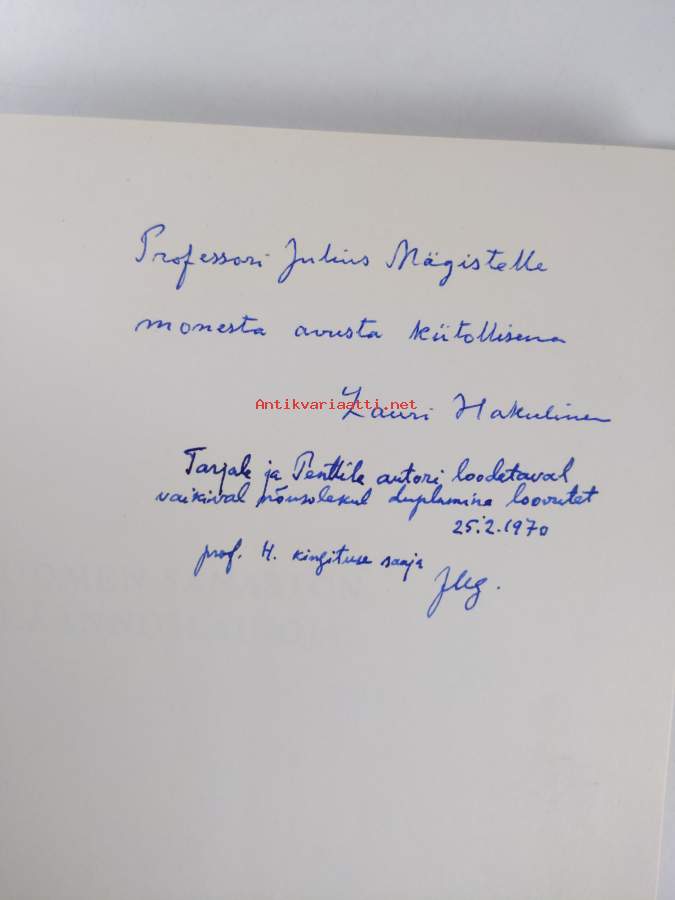 Professori Julius Mägistelle
monesta avusta kiitollisena
Antikvariaatti.net
Lauri Hakulinen
Tarjale ja Penttile autori loodetaval
vaikival nõusolekul duplumina loovutet
25.2.1970
prof. H. kingituse saaja
JMg.